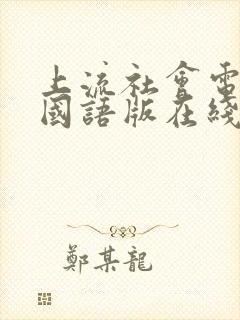 上流社會電
國語版在綫
鄭某龍